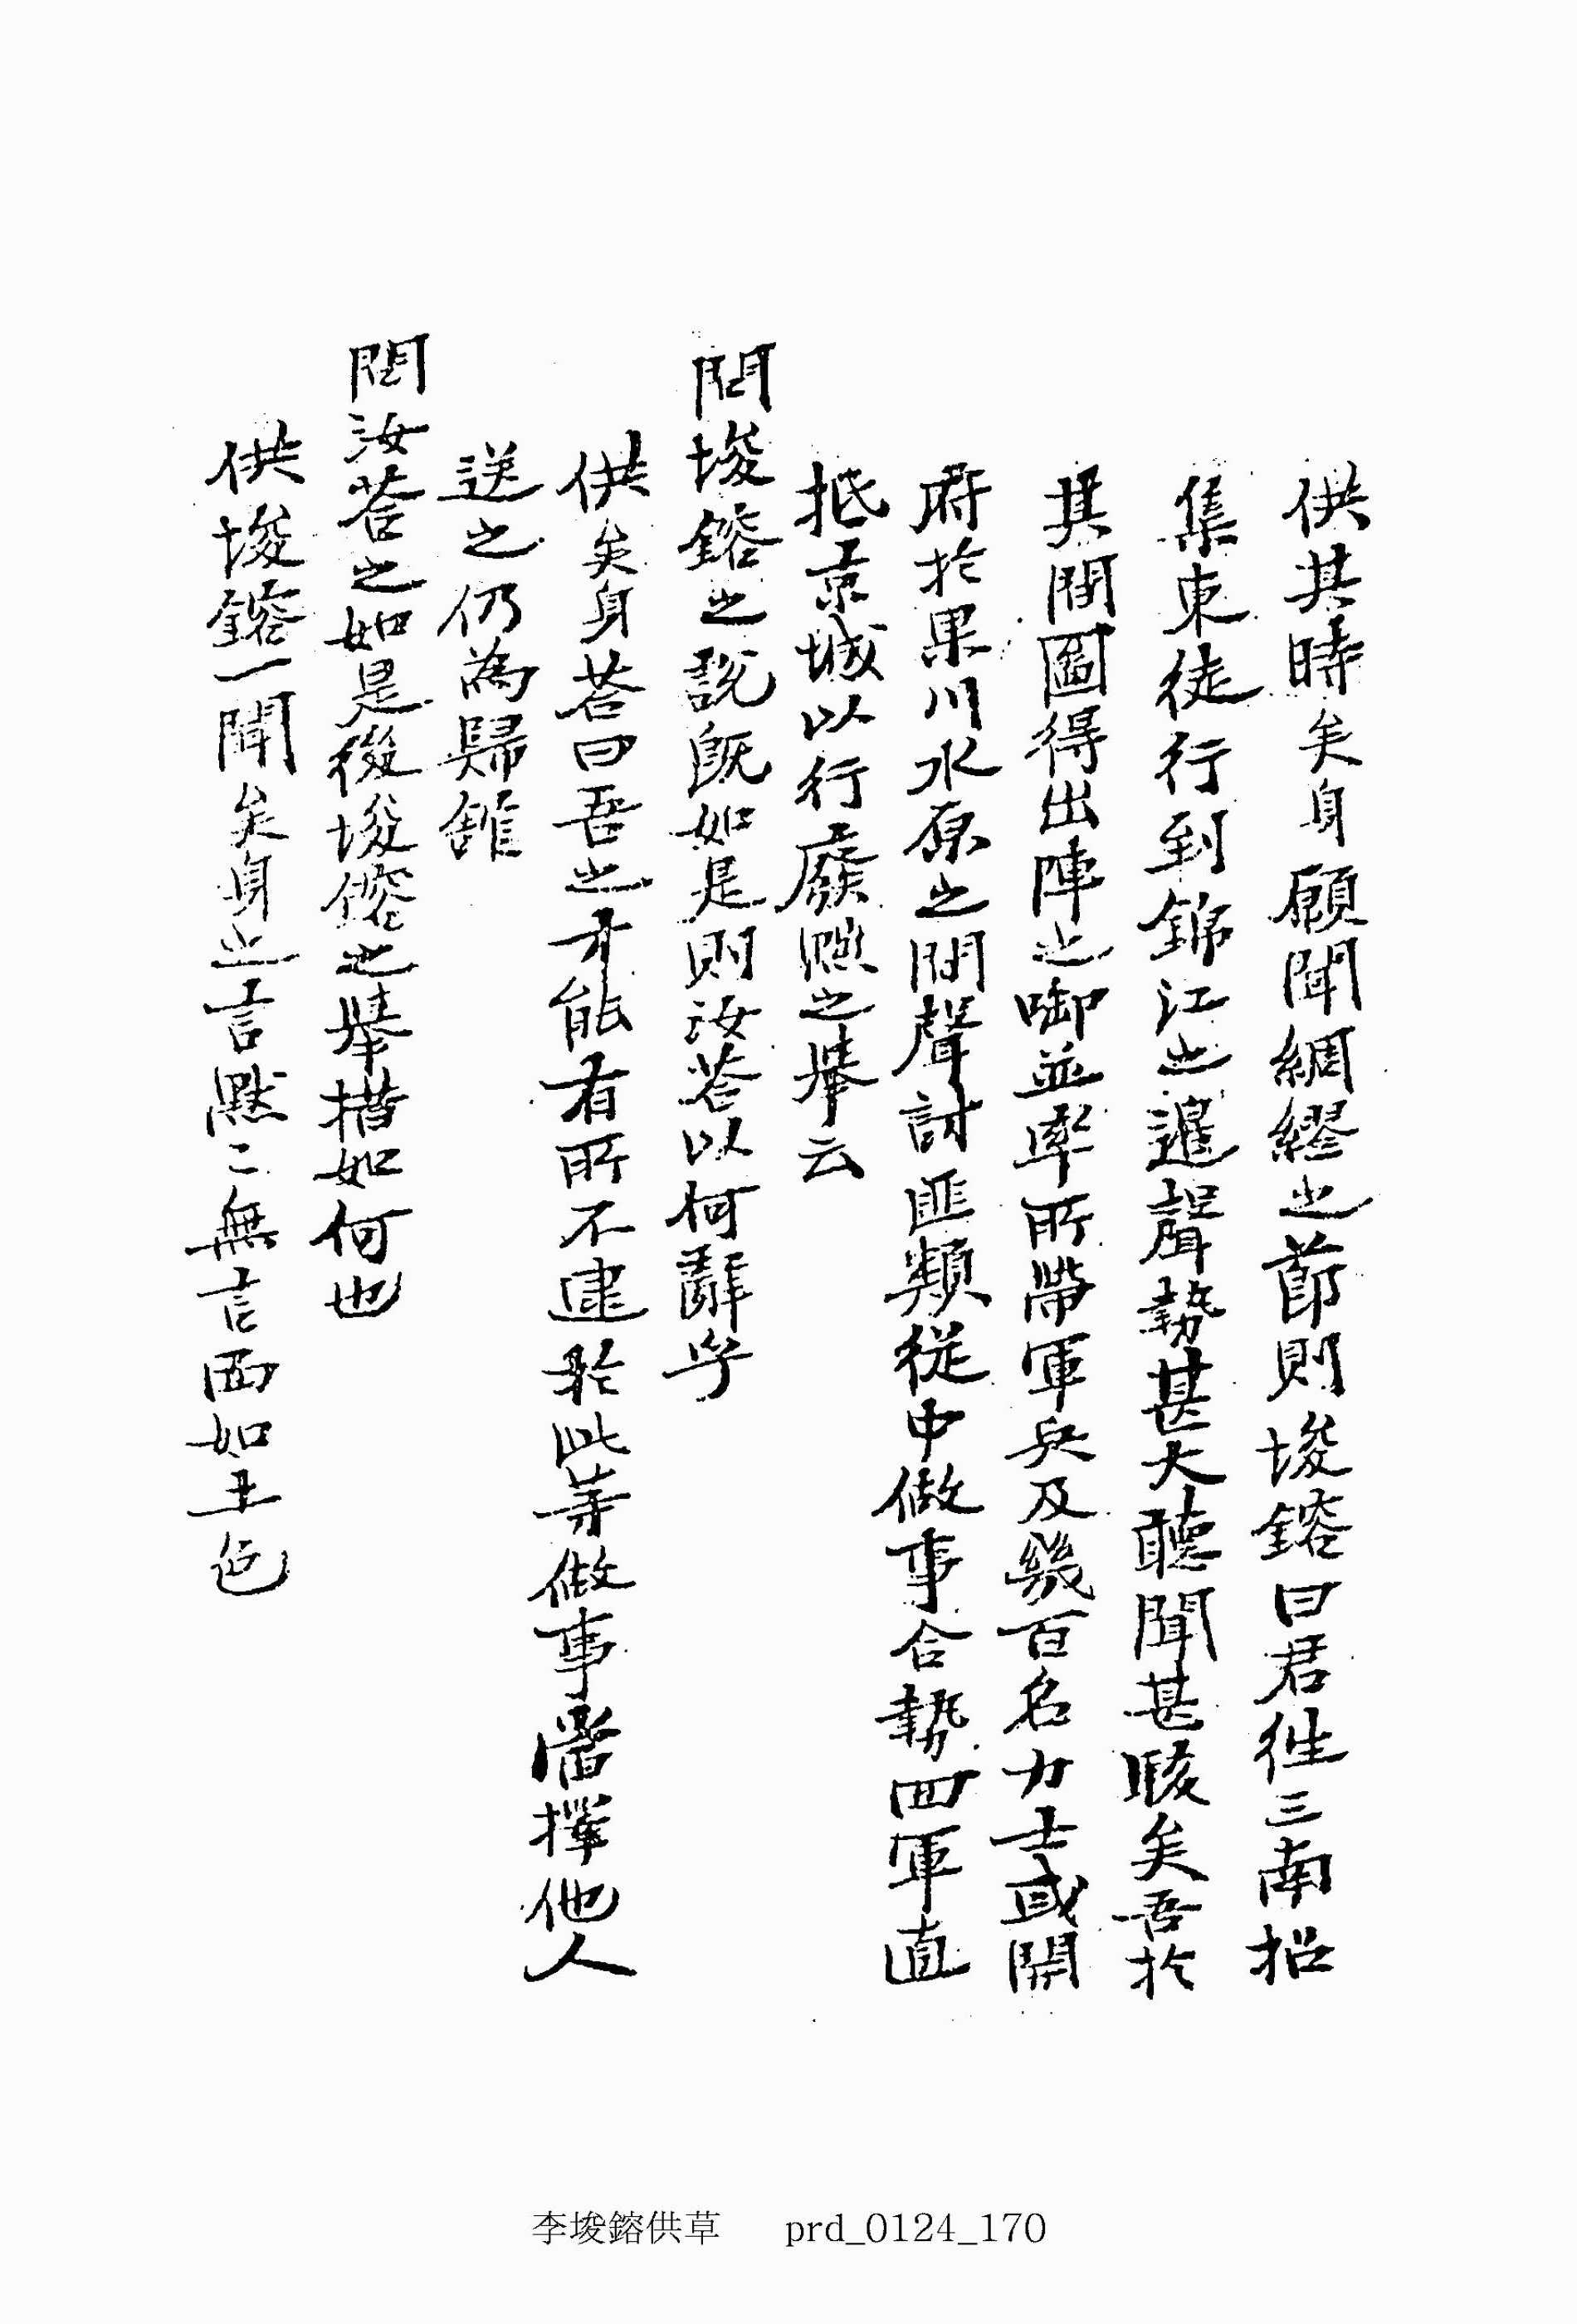 供其時矣身願聞綢繆之節則埈鎔曰君徃三南招
集東徒行到錦江之邊聲勢甚大聽聞甚駭矣吾於
其間圖得出陣之啣並率所帶軍兵及幾百名力士或開
府於果川水原之間聲討匪類從中做事合勢四軍直
抵京城以行廢之擧云
問埈鎔之說旣如是則汝荅以何辭乎
供矣身荅曰吾之才能有所不逮於此等做事當擇他人
送之仍爲歸館
問汝荅之如是後埈鎔之擧措如何也
供埈鎔一聞矣身之言默〻無言面如土色
李埈鎔供草 prd_0124_170